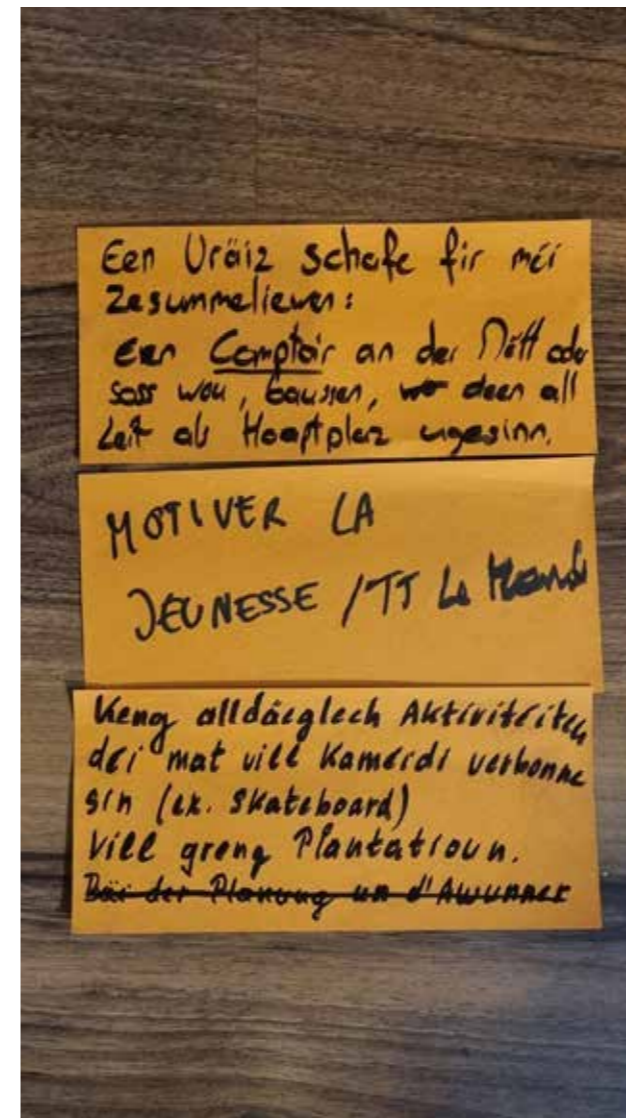 Een Uräiz schafe fir méi
Zesummeliewen:
Een Comptoir an der Mëtt oder
soss wou, baussen, deen all
Leit als Haaptplaz ugesinn.
MOTIVER LA
JEUNESSE / TT Le Monde
Keng alldäeglech Aktivitéiten
déi mat vill Kaméidi verbonne
sin (ex. Skateboard)
Vill greng Plantatioun.
Bäi der Planung un d'Awunner